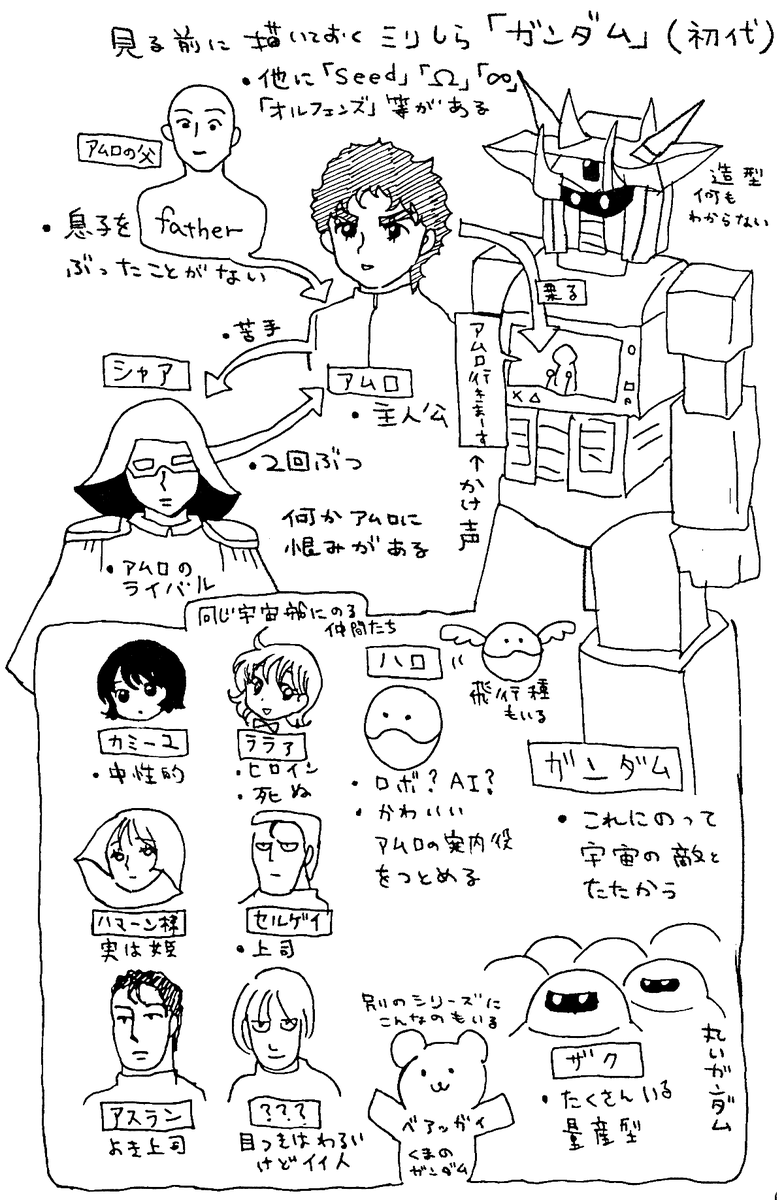 見る前に描いておくミリしら「ガンダム」(初代)
・他に「Seed」「Ω」「∞」
「オルフェンズ」等がある
アムロの父
father
・息子を
ぶったことがない
造型
何も
わからない
乗る
・苦手
シャア
アムロ
・主人公
アムロ行きまーす
←かけ声
・2回ぶつ
何かアムロに
恨みがある
・アムロの
ライバル
同じ宇宙船にのる
仲間たち
カミーユ
・中性的
ララァ
・ヒロイン
・死ぬ
ハロ
飛行種
もいる
・ロボ?AI?
・かわいい
アムロの案内役
をつとめる
ガンダム
・これにのって
宇宙の敵と
たたかう
ハマーン様
実は姫
セルゲイ
・上司
アスラン
よき上司
???
目つきはわるい
けどイイ人
別のシリーズに
こんなのもいる
ベアッガイ
くまの
ガンダム
ザク
・たくさんいる
量産型
丸いガンダム